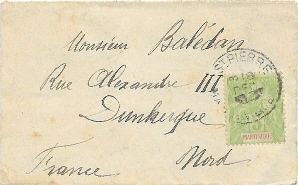 Monsieur Balédan
Rue Alexandre III
Dunkerque
Nord
France
ST-PIERRE
MARTINIQUE